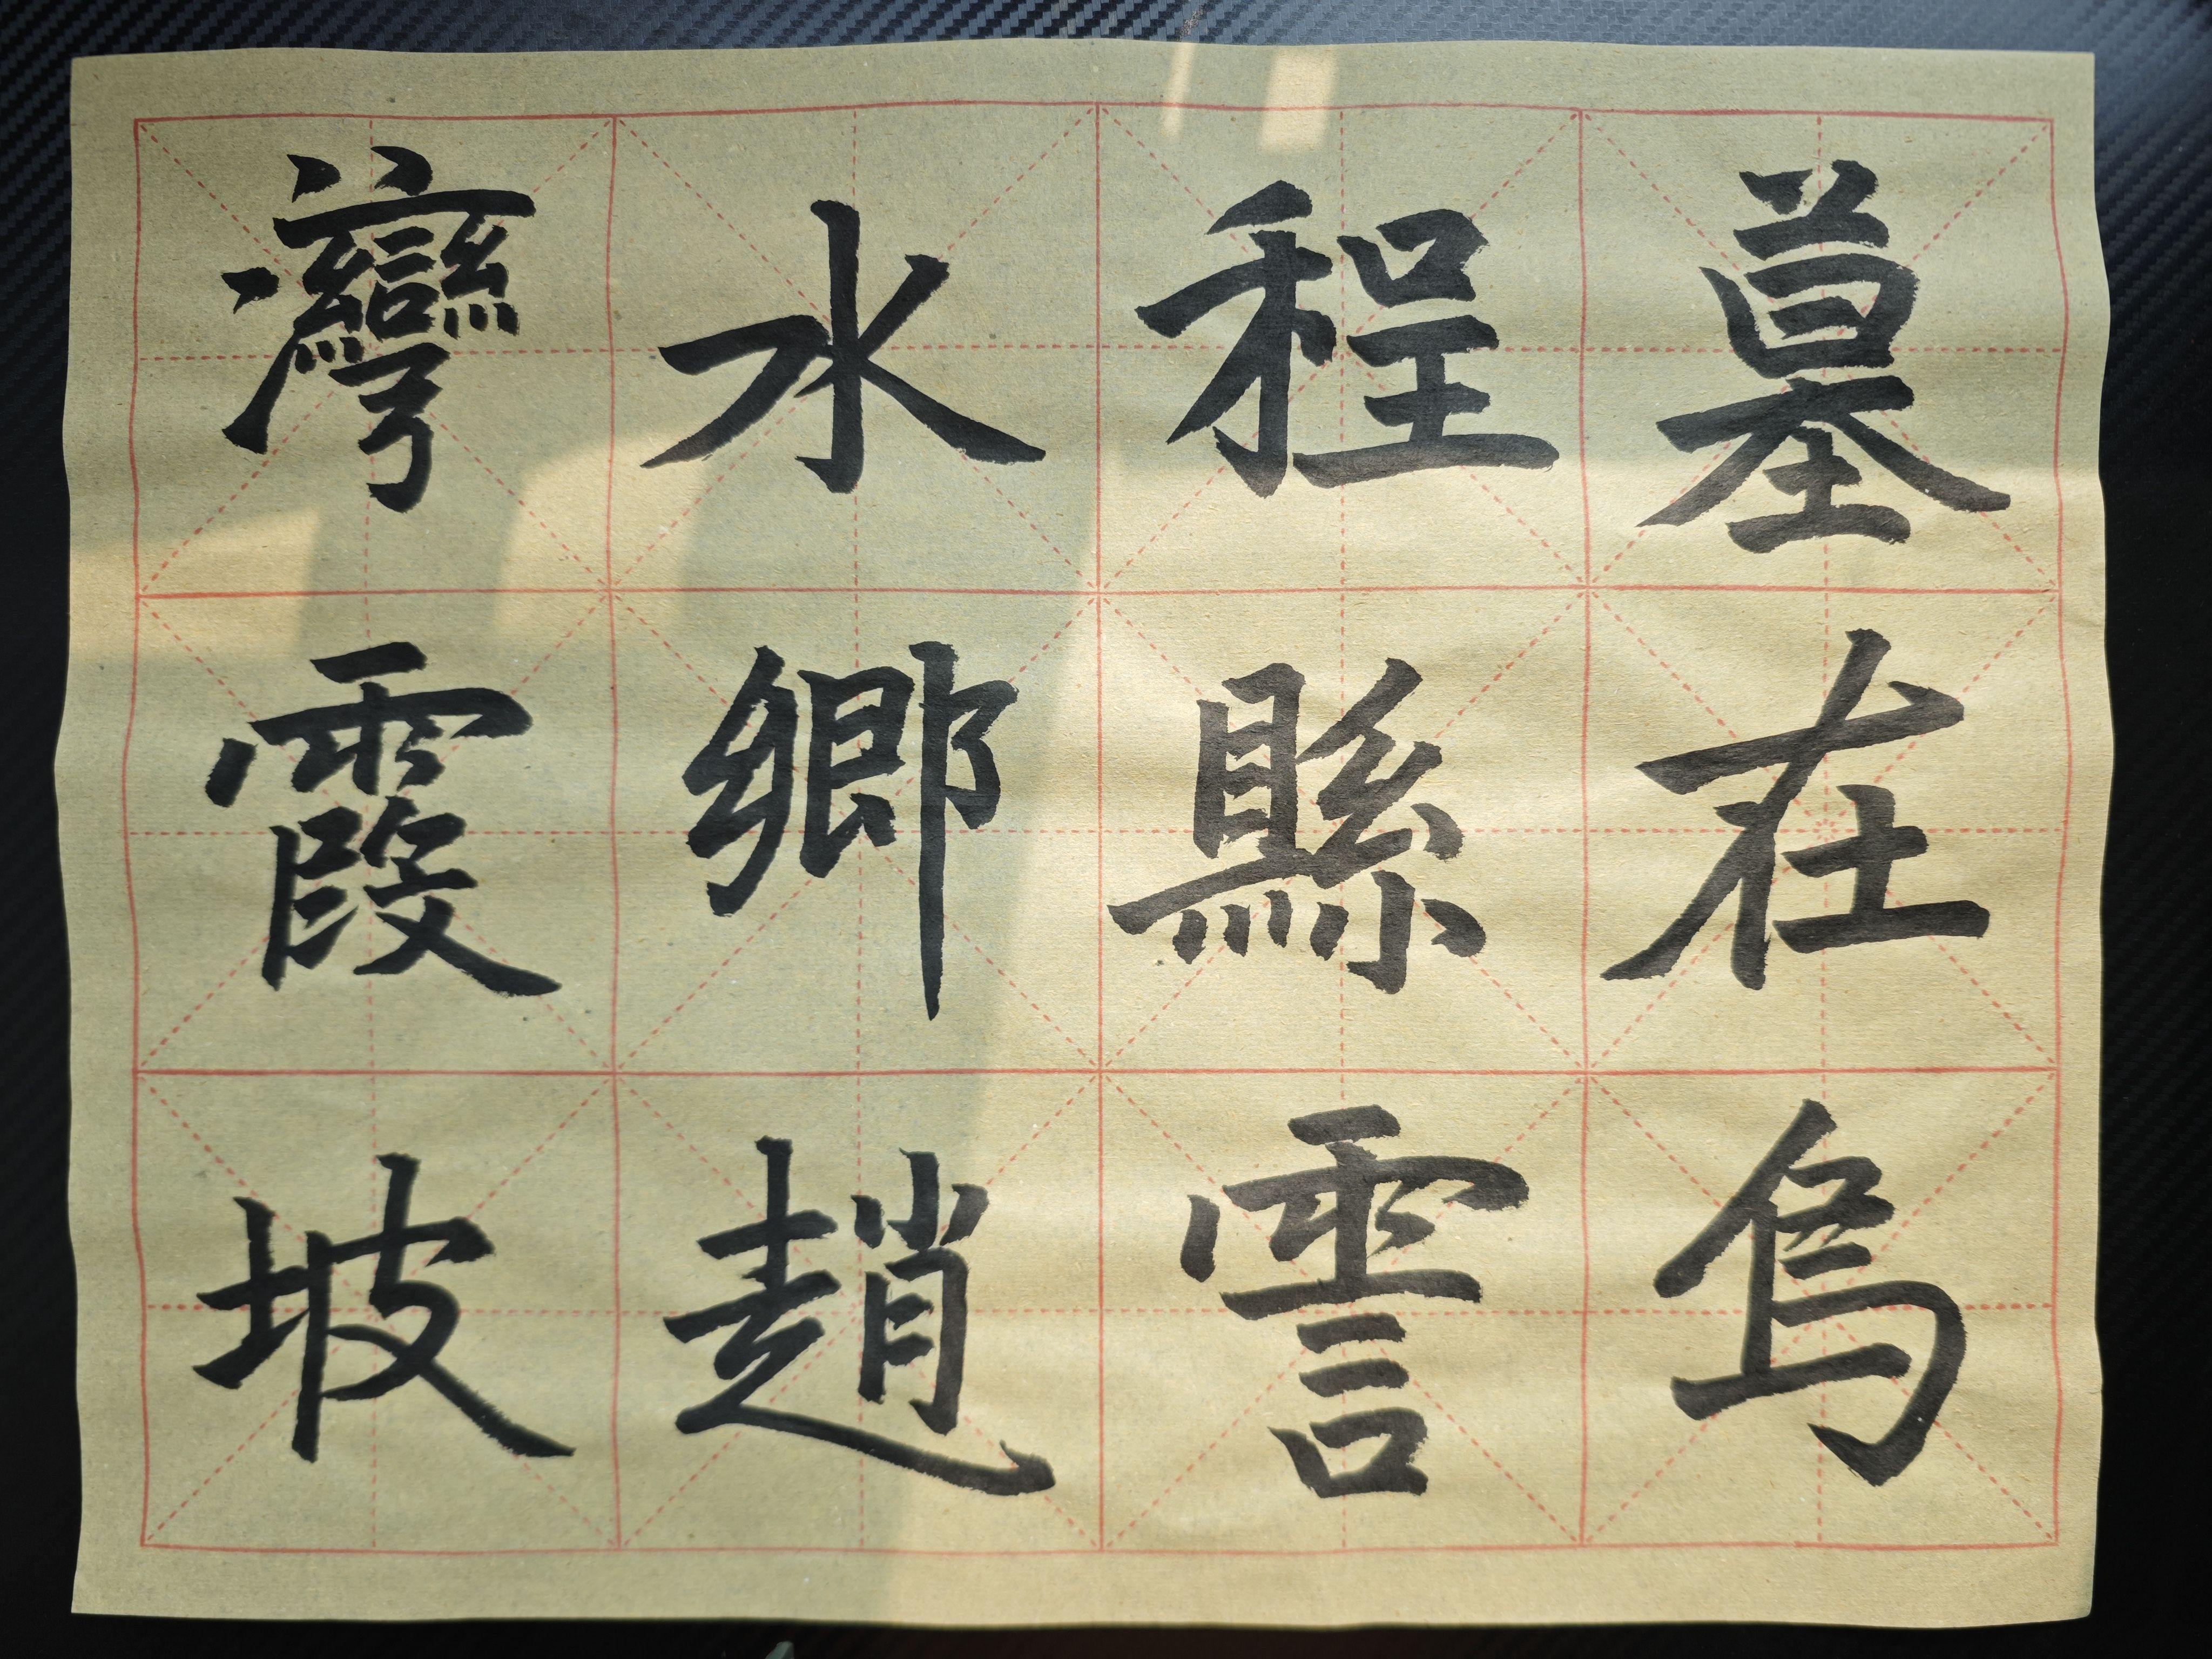 墓在烏
程縣霅
水鄉趙
灣霞坡